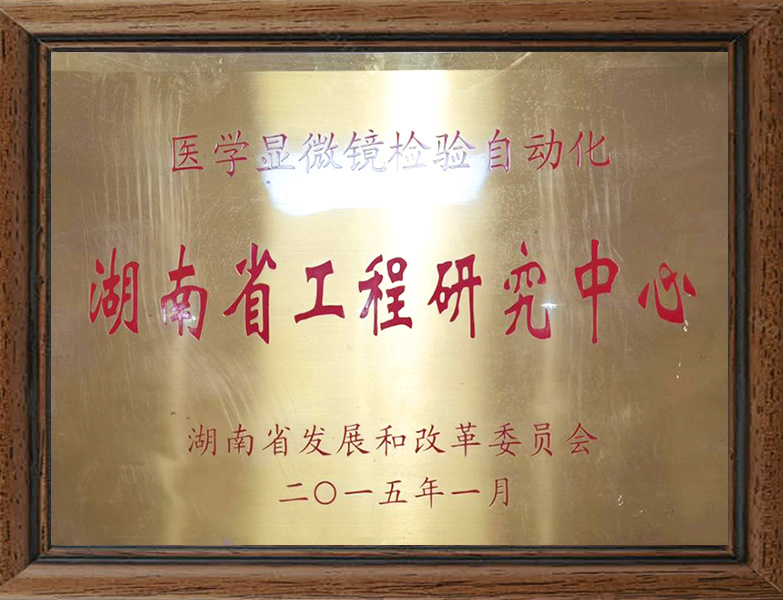 医学显微镜检验自动化
湖南省工程研究中心
湖南省发展和改革委员会
二〇一五年一月